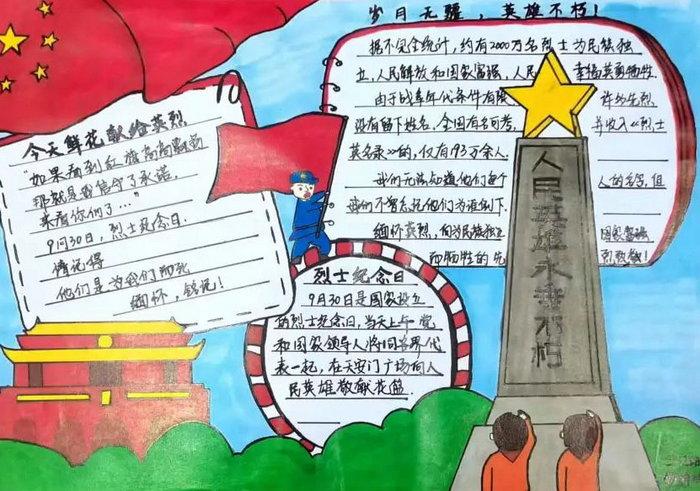 岁月无疆，英雄不朽！
据不完全统计，约有2000万名烈士为民族独
立，人民解放和国家富强，人民 幸福英勇牺牲
由于战争年代条件有限 许多先烈
没有留下姓名，全国有名可考， 并收入《烈士
英名录》的，仅有193万余人。
我们无法知道他们每个 人的名字，但
我们不曾忘记他们为谁倒下
缅怀英烈，向为民族独立 国家富强
而牺牲的先 烈致敬！
今天鲜花献给英烈
"如果看到红旗高高飘扬
那就是我
了承诺，
来看你们了…"
9月30日，烈士纪念日
请记得
他们是为我们而死
缅怀，铭记！
烈士纪念日
9月30日是国家设立
的烈士纪念日，当天上午党
和国家领导人将同各界代
表一起，在天安门广场向人
民英雄敬献花篮
人民英雄永垂不朽